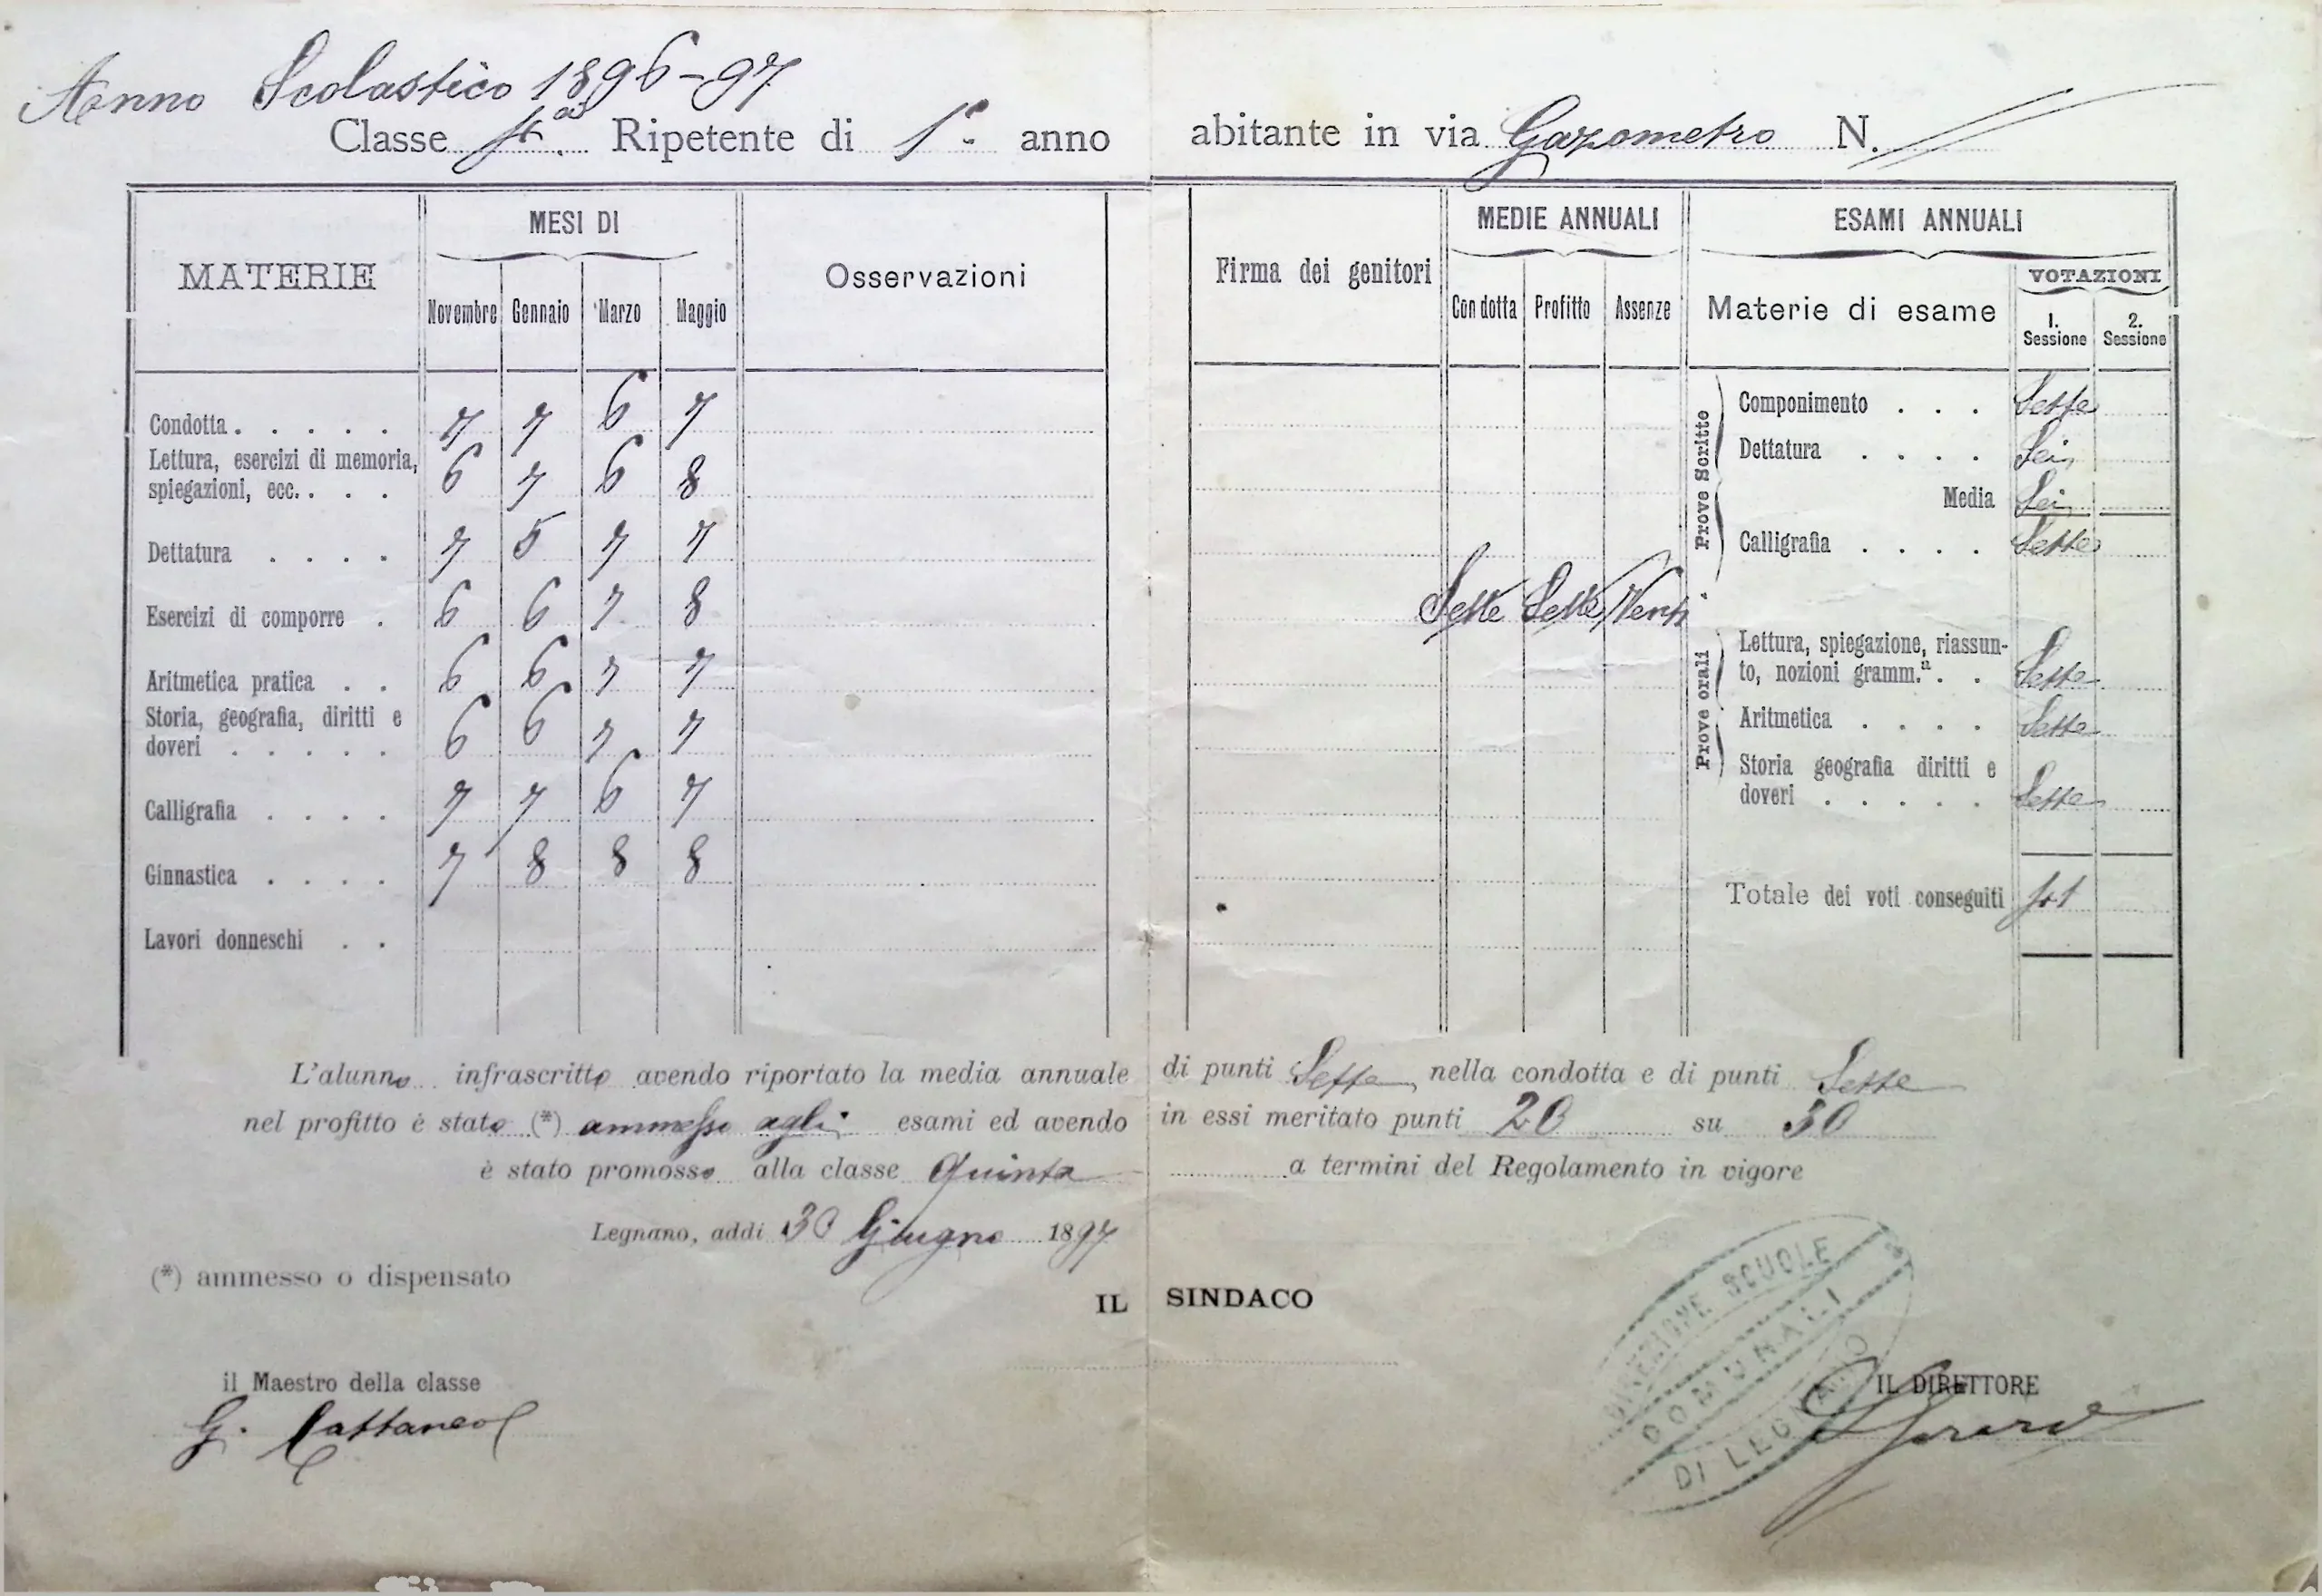 Anno Scolastico 1896-97
Classe 4.a Ripetente di 1° anno abitante in via Gazometro N.
MATERIE MESI DI Osservazioni Firma dei genitori MEDIE ANNUALI ESAMI ANNUALI
Novembre Gennaio Marzo Maggio Condotta Profitto Assenze Materie di esame VOTAZIONI
1. Sessione 2. Sessione
Condotta . . . . . 7 7 6 7
Lettura, esercizi di memoria,
spiegazioni, ecc. . . . 6 7 6 8
Dettatura . . . . 7 5 7 7
Esercizi di comporre . 6 6 7 8
Aritmetica pratica . . 6 6 7 7
Storia, geografia, diritti e
doveri . . . . . 6 6 7 7
Calligrafia . . . . 7 7 6 7
Ginnastica . . . . 7 8 8 8
Lavori donneschi . .
Sette Sette Venti
Prove Scritto
Componimento . . . Sette
Dettatura . . . . Sei
Media Sei
Calligrafia . . . . Sette
Prove orali
Lettura, spiegazione, riassun-
to, nozioni gramm.a . . Sette
Aritmetica . . . . Sette
Storia geografia diritti e
doveri . . . . . Sette
Totale dei voti conseguiti
L'alunno infrascritto avendo riportato la media annuale di punti Sette nella condotta e di punti Sette
nel profitto è stato (*) ammesso agli esami ed avendo in essi meritato punti 20 su 30
è stato promosso alla classe Quinta a termini del Regolamento in vigore
Legnano, addi 30 Giugno 1897
(*) ammesso o dispensato
IL SINDACO
DIREZIONE SCUOLE
COMUNALI
DI LEGNANO
il Maestro della classe
G. Cattaneo
IL DIRETTORE